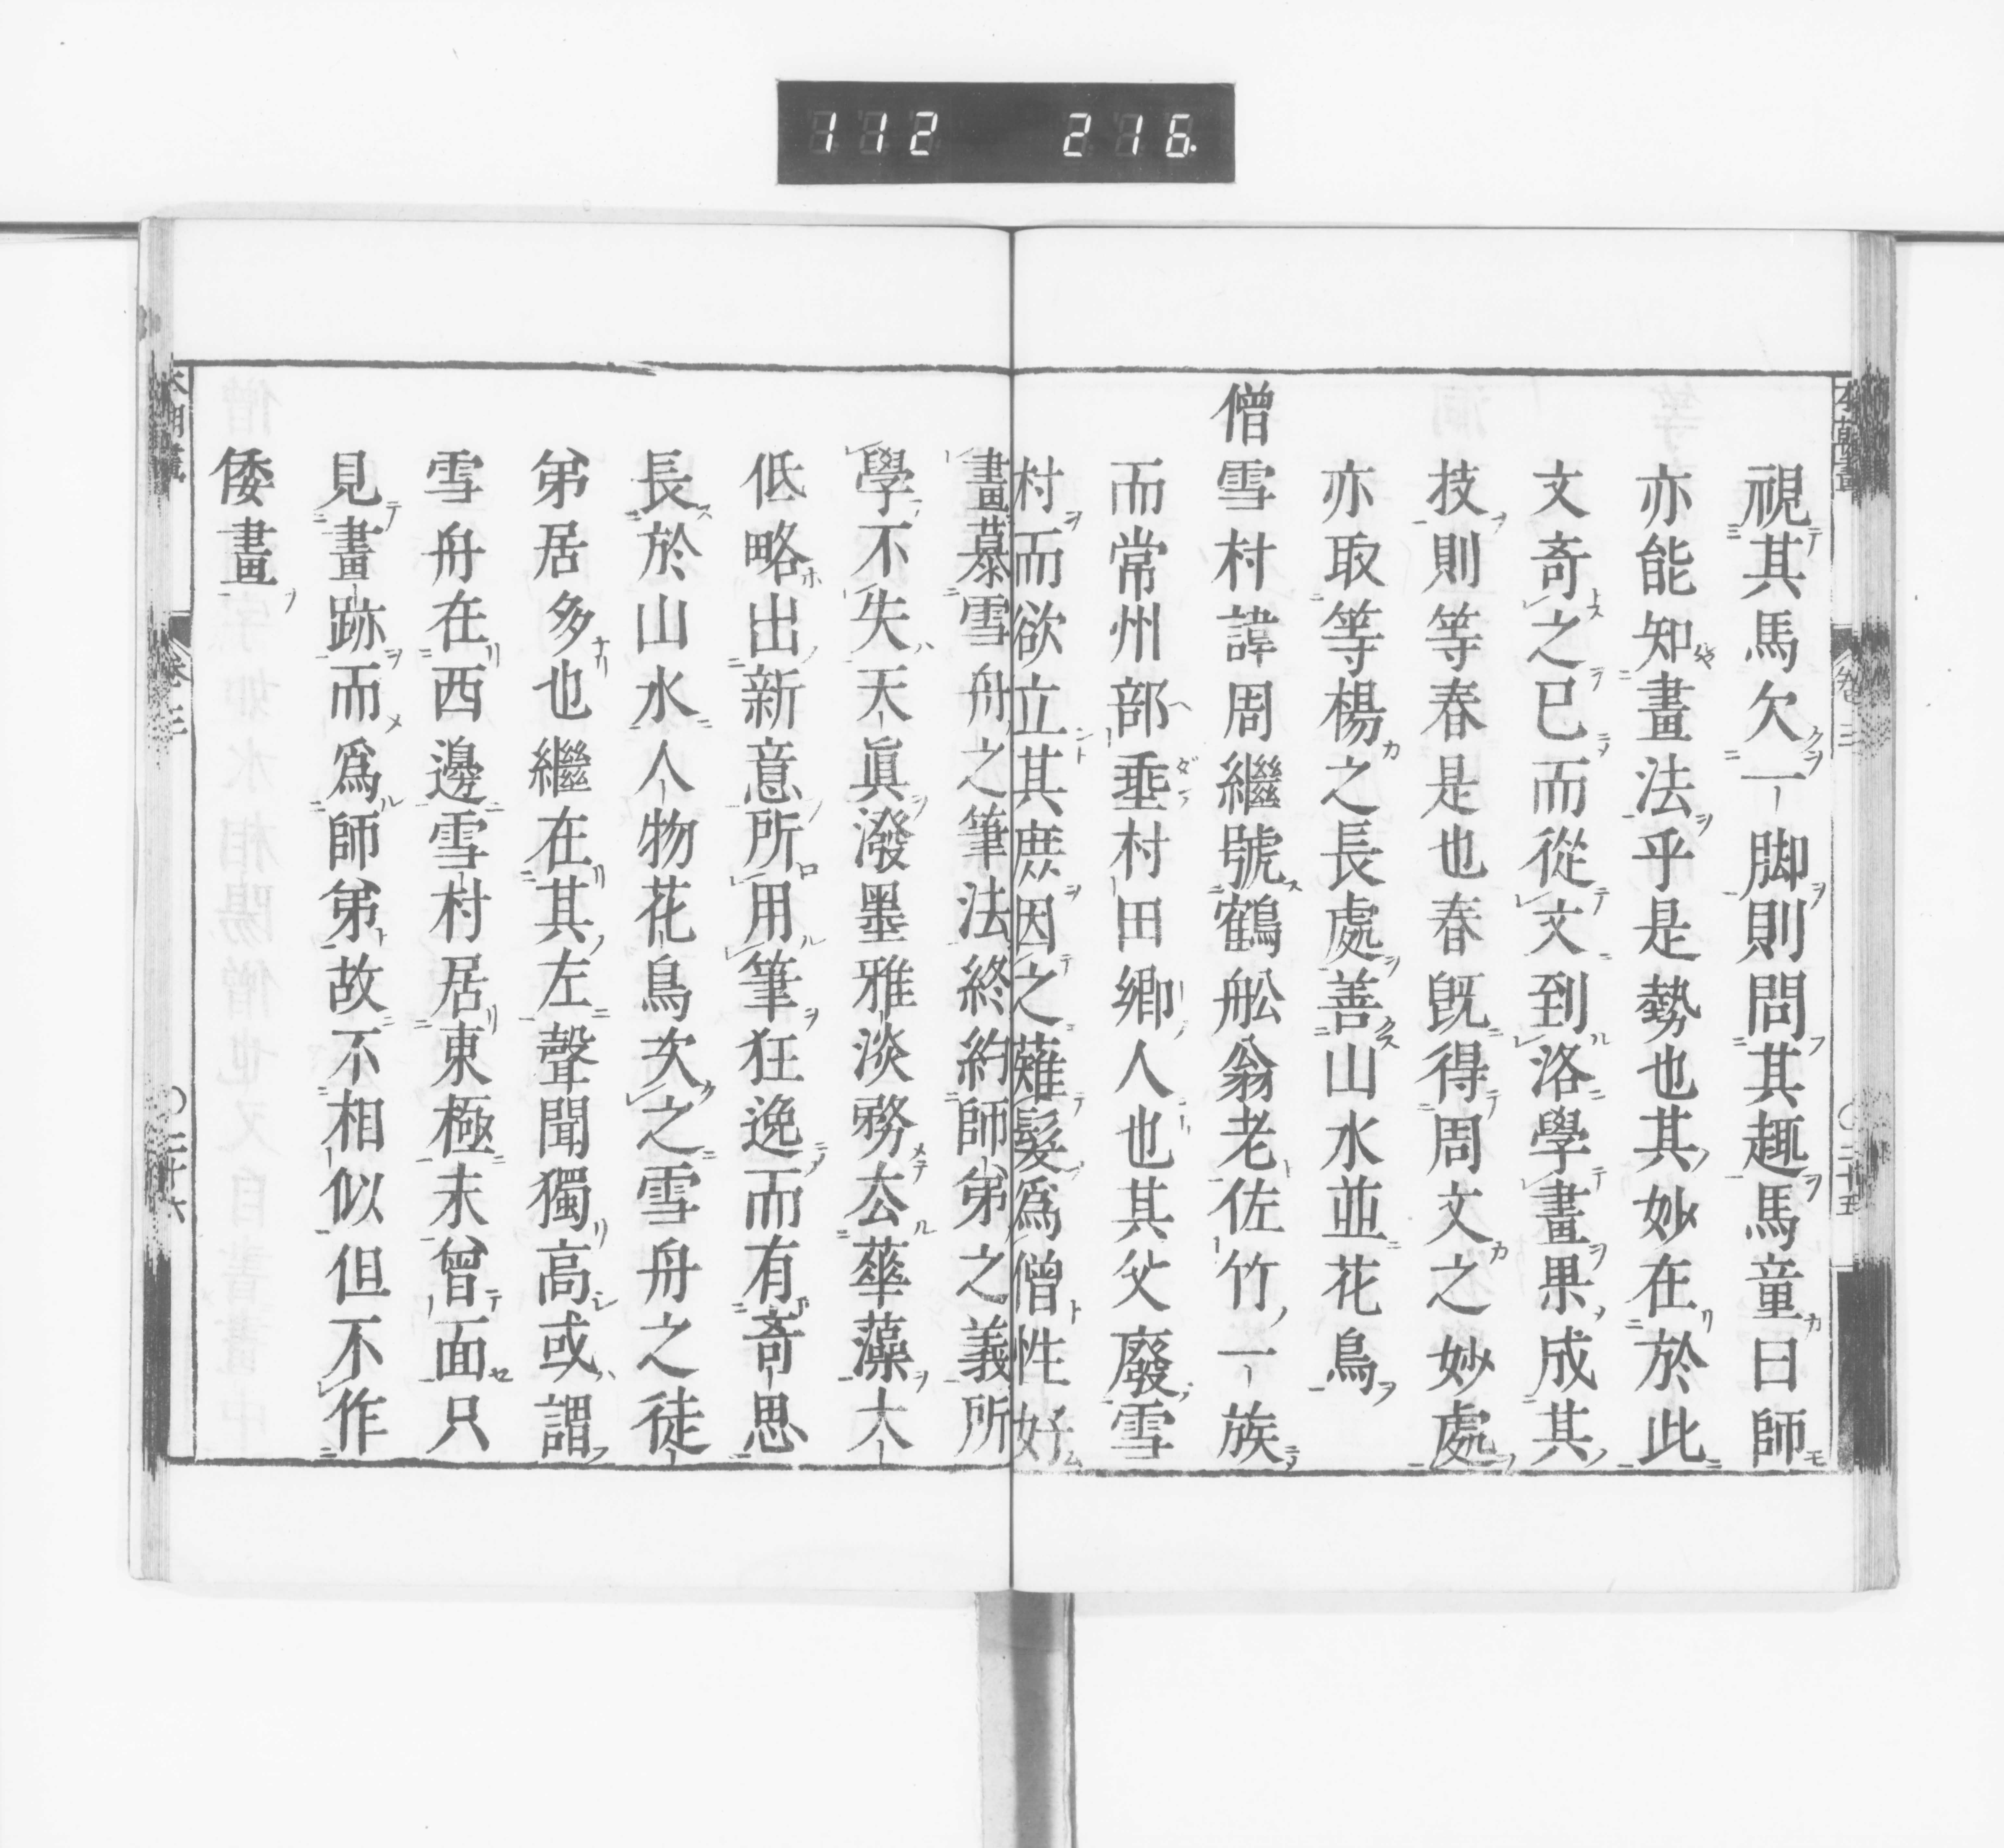 112 216.
視其馬欠一脚則問其趣馬童曰師
亦能知畫法乎是勢也其妙在於此
文奇之已而從文到洛學畫果成其
技則等春是也春既得周文之妙處
亦取等楊之長處善山水並花鳥
僧雪村諱周繼號鶴舩翁老佐竹一族
而常州部垂村田郷人也其父廢雪
村而欲立其庶因之薙髮爲僧性好
畫慕雪舟之筆法終約師弟之義所
學不失天眞潑墨雅淡務去華藻大
低略出新意所用筆狂逸而有奇思
長於山水人物花鳥次之雪舟之徒
弟居多也繼在其左聲聞獨高或謂
雪舟在西邊雪村居東極未曾面只
見畫跡而爲師弟故不相似但不作
倭畫